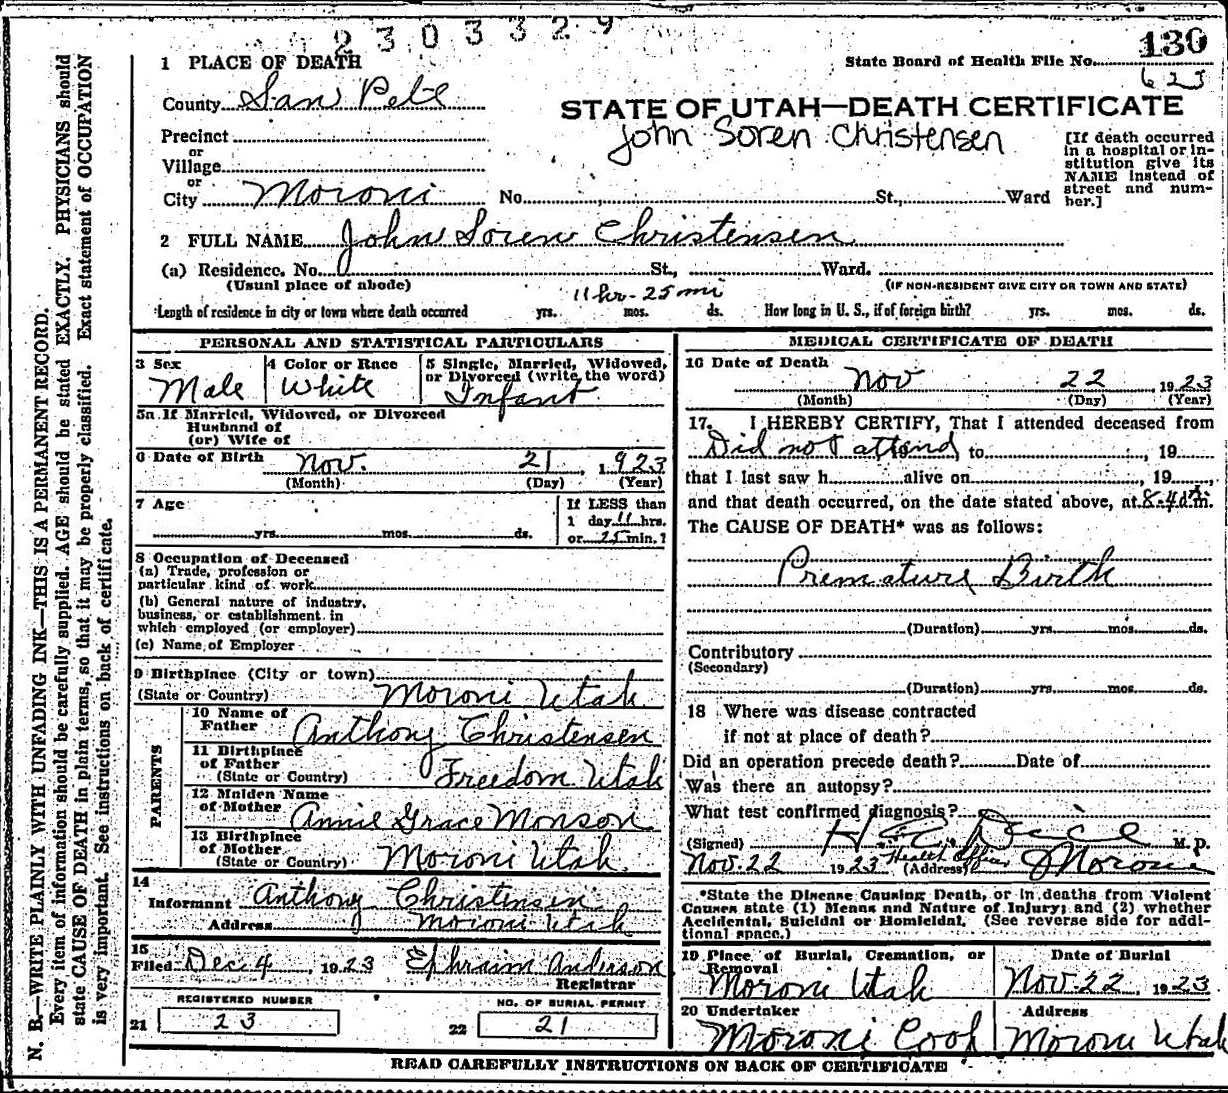 2303329
130
State Board of Health File No.
623
1 PLACE OF DEATH
County San Pete
STATE OF UTAH—DEATH CERTIFICATE
John Soren Christensen
Precinct
or
Village
or
City Moroni No. St., Ward
[If death occurred
in a hospital or in-
stitution give its
NAME instead of
street and num-
ber.]
2 FULL NAME John Soren Christensen
(a) Residence. No. St., Ward.
(Usual place of abode) (IF NON-RESIDENT GIVE CITY OR TOWN AND STATE)
11 hr - 25 mi
Length of residence in city or town where death occurred yrs. mos. ds. How long in U. S., if of foreign birth? yrs. mos. ds.
PERSONAL AND STATISTICAL PARTICULARS
3 Sex
Male
4 Color or Race
White
5 Single, Married, Widowed,
or Divorced (write the word)
Infant
5a If Married, Widowed, or Divorced
Husband of
(or) Wife of
6 Date of Birth Nov. 21, 1923
(Month) (Day) (Year)
7 Age
yrs. mos. ds.
If LESS than
1 day 11 hrs.
or 25 min.?
8 Occupation of Deceased
(a) Trade, profession or
particular kind of work
(b) General nature of industry,
business, or establishment in
which employed (or employer)
(c) Name of Employer
9 Birthplace (City or town)
(State or Country) Moroni Utah
PARENTS
10 Name of
Father Anthony Christensen
11 Birthplace
of Father
(State or Country) Freedom Utah
12 Maiden Name
of Mother Annie Grace Monson
13 Birthplace
of Mother
(State or Country) Moroni Utah
14
Informant Anthony Christensen
Address Moroni Utah
15
Filed Dec 4, 1923 Ephraim Anderson
Registrar
REGISTERED NUMBER
21 23
NO. OF BURIAL PERMIT
22 21
MEDICAL CERTIFICATE OF DEATH
16 Date of Death
Nov 22 1923
(Month) (Day) (Year)
17. I HEREBY CERTIFY, That I attended deceased from
Did not attend to , 19
that I last saw h alive on , 19
and that death occurred, on the date stated above, at m.
The CAUSE OF DEATH* was as follows:
Premature Birth
(Duration) yrs. mos. ds.
Contributory
(Secondary)
(Duration) yrs. mos. ds.
18 Where was disease contracted
if not at place of death?
Did an operation precede death? Date of
Was there an autopsy?
What test confirmed diagnosis?
(Signed) M. D.
Nov. 22 1923 Health Officer (Address) Moroni
*State the Disease Causing Death, or in deaths from Violent
Causes state (1) Means and Nature of Injury; and (2) whether
Accidental, Suicidal or Homicidal. (See reverse side for addi-
tional space.)
19 Place of Burial, Cremation, or
Removal
Moroni Utah
Date of Burial
Nov. 22, 1923
20 Undertaker
Moroni Coop
Address
Moroni Utah
READ CAREFULLY INSTRUCTIONS ON BACK OF CERTIFICATE
N. B.—WRITE PLAINLY WITH UNFADING INK—THIS IS A PERMANENT RECORD.
Every item of information should be carefully supplied. AGE should be stated EXACTLY. PHYSICIANS should
state CAUSE OF DEATH in plain terms, so that it may be properly classified. Exact statement of OCCUPATION
is very important. See instructions on back of certificate.